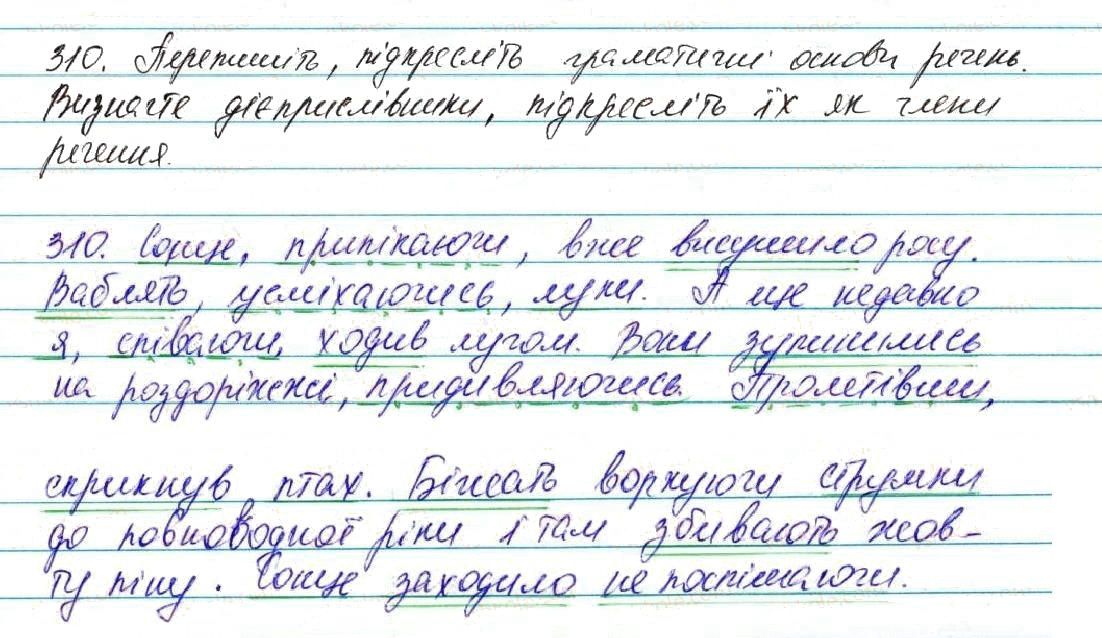 310. Перепишіть, підкресліть граматичні основи речень.
Визначте дієприслівники, підкресліть їх як члени
речення.
310. Сонце, припікаючи, вже висушило росу.
Ваблять, усміхаючись, луки. А ще недавно
я, співаючи, ходив лугом. Вони зупинились
на роздоріжжі, придивляючись. Пролетівши,
скрикнув птах. Біжать воркуючи струмки
до повноводної ріки і там збивають жов-
ту піну. Сонце заходило не поспішаючи.